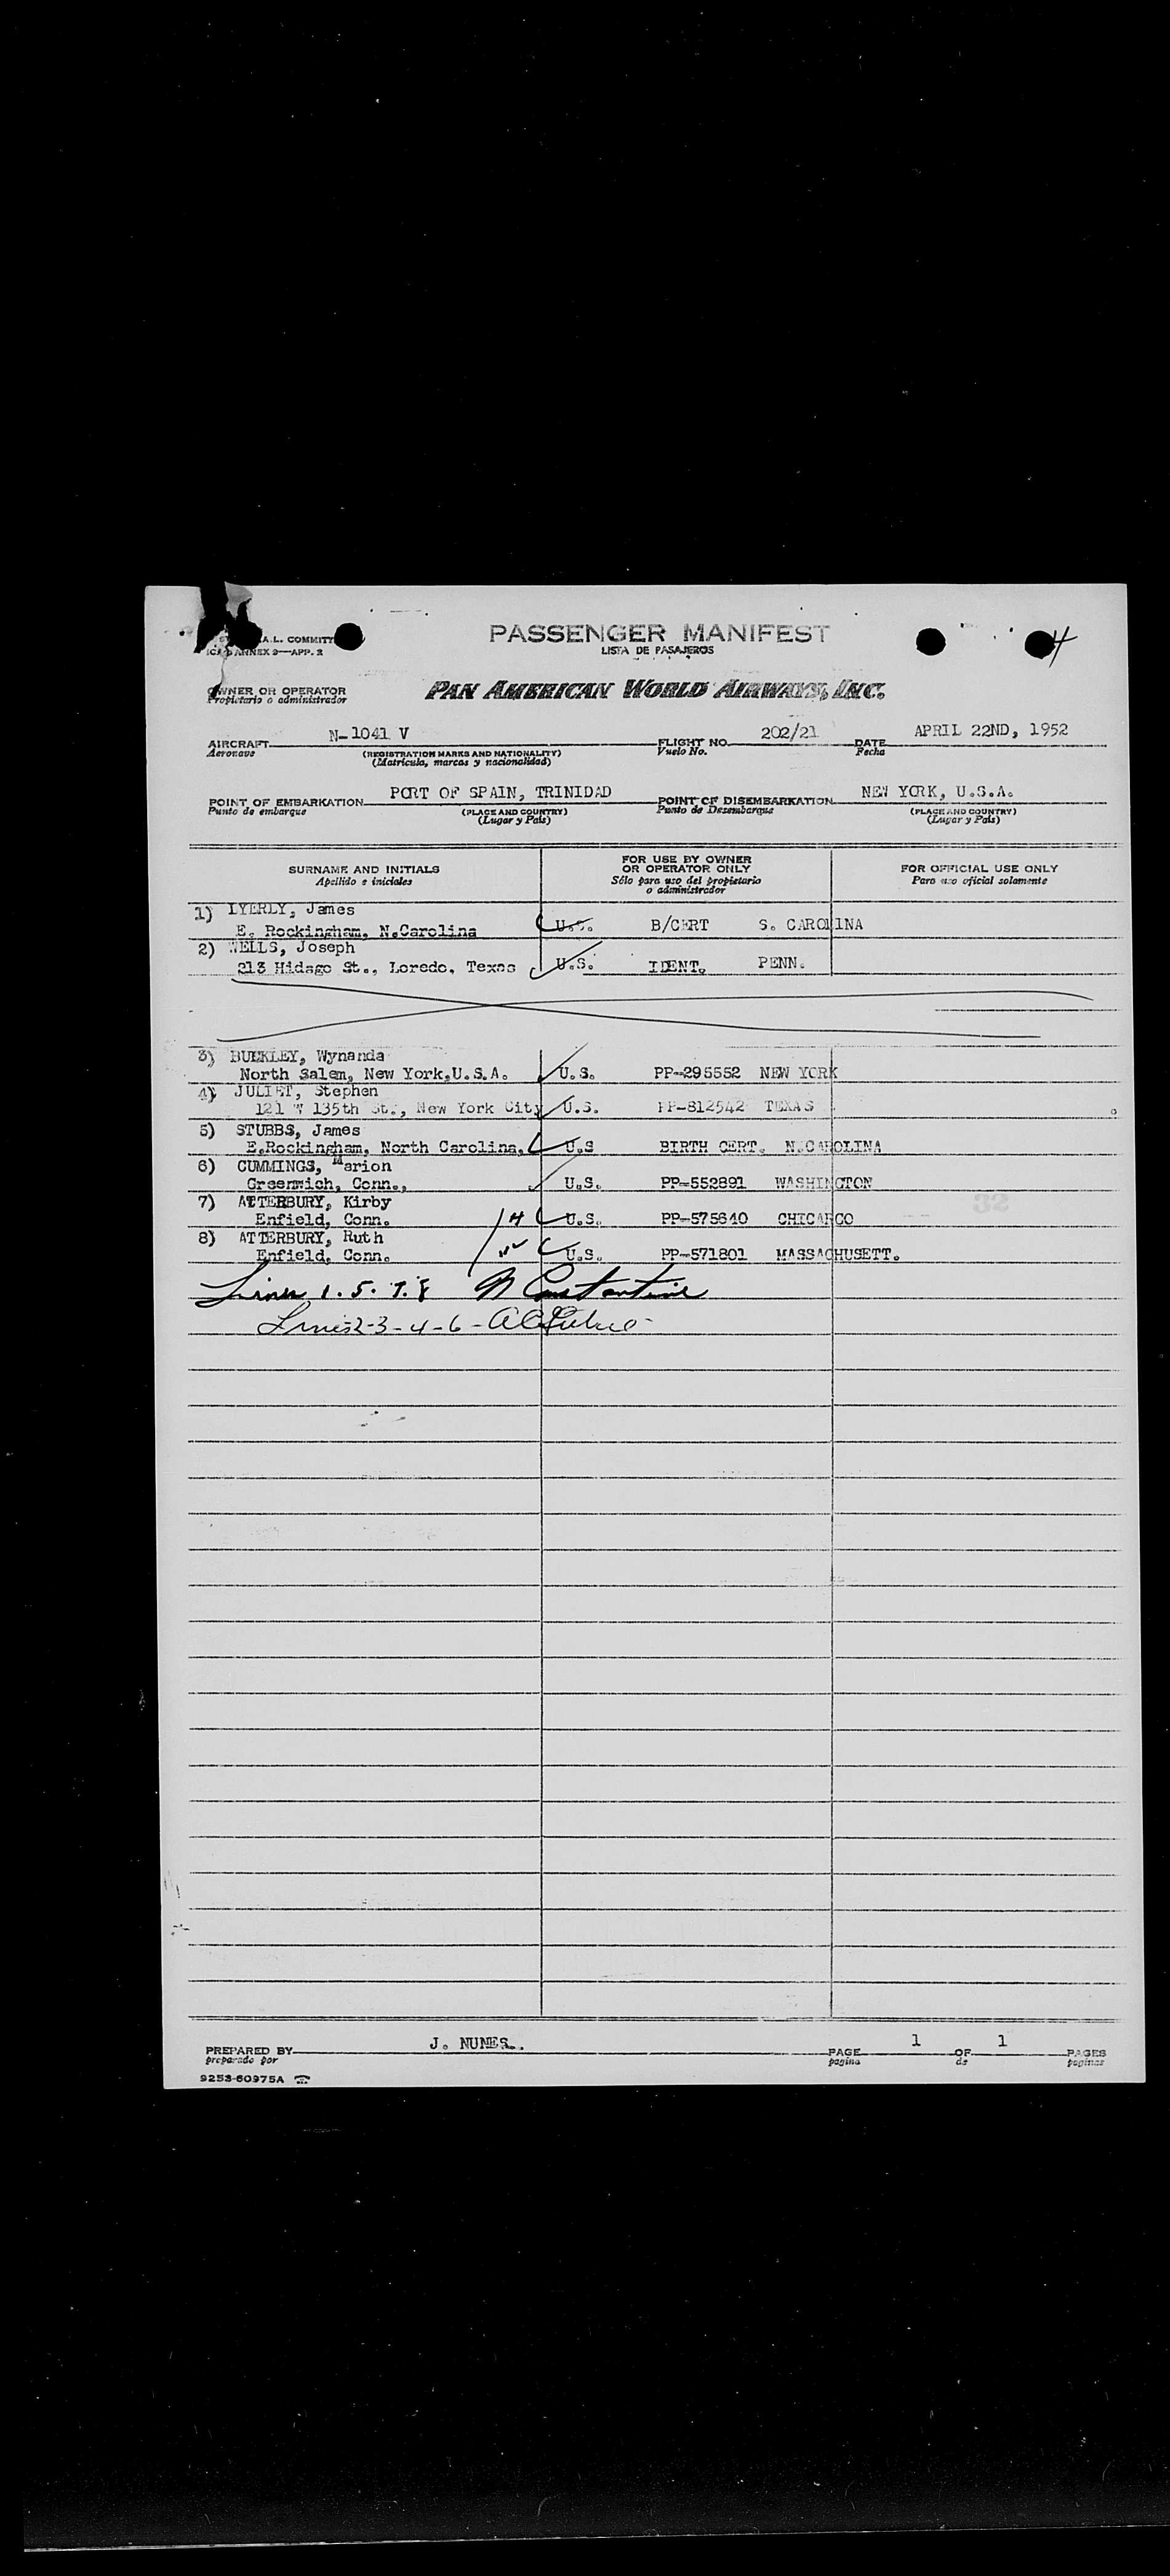 A.L. COMMITT
ICAO ANNEX 9—APP. 2
PASSENGER MANIFEST
LISTA DE PASAJEROS
4
OWNER OR OPERATOR
Propietario o administrador
PAN AMERICAN WORLD AIRWAYS, INC.
AIRCRAFT N-1041 V FLIGHT NO. 202/21 DATE APRIL 22ND, 1952
Aeronave (REGISTRATION MARKS AND NATIONALITY) Vuelo No. Fecha
(Matrícula, marcas y nacionalidad)
POINT OF EMBARKATION PORT OF SPAIN, TRINIDAD POINT OF DISEMBARKATION NEW YORK, U.S.A.
Punto de embarque (PLACE AND COUNTRY) Punto de Desembarque (PLACE AND COUNTRY)
(Lugar y País) (Lugar y País)
SURNAME AND INITIALS FOR USE BY OWNER OR OPERATOR ONLY FOR OFFICIAL USE ONLY
Apellido e iniciales Sólo para uso del propietario o administrador Para uso oficial solamente
1) LYERLY, James
E. Rockingham, N.Carolina U.S. B/CERT S. CAROLINA
2) WELLS, Joseph
213 Hidago St., Loredo, Texas U.S. IDENT. PENN.
3) BUCKLEY, Wynanda
North Salem, New York,U.S.A. U.S. PP-295552 NEW YORK
4) JULIET, Stephen
121 W 135th St., New York City U.S. PP-812542 TEXAS
5) STUBBS, James
E.Rockingham, North Carolina. U.S BIRTH CERT. N.CAROLINA
6) CUMMINGS, Marion
Greenwich, Conn., U.S. PP-552891 WASHINGTON
7) ATTERBURY, Kirby
Enfield, Conn. U.S. PP-575640 CHICARGO
8) ATTERBURY, Ruth
Enfield, Conn. U.S. PP-571801 MASSACHUSETT.
32
Lines 1. 5. 7. 8 N Constantine
Lines 2-3-4-6-
PREPARED BY J. NUNES. PAGE 1 OF 1 PAGES
preparado por pagina de paginas
9253-60975A